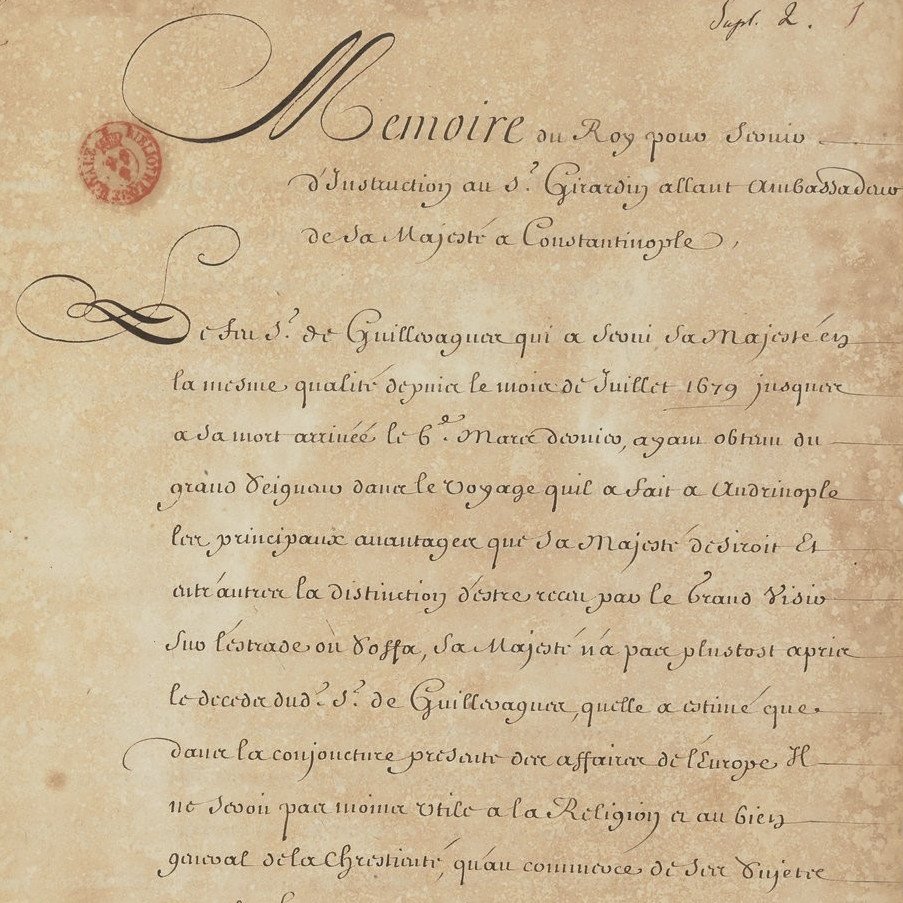 Supl. 2. 1
Memoire du Roy pour servir
d'Instruction au Sr. Girardin allant Ambassadeur
de Sa Majesté a Constantinople,
Le feu Sr. de Guilleragues qui a servi Sa Majesté en
la mesme qualité depuis le mois de Juillet 1679 jusques
a Sa mort arrivée le 6e. Mars dernier, ayant obtenu du
grand Seigneur dans le voyage quil a fait a Andrinople
les principaux auantages que Sa Majesté desiroit Et
entr'autres la distinction d'estre receu par le Grand Visir
Sur l'estrade ou Soffa, Sa Majesté n'a pas plustost apris
le deceds dud. Sr. de Guilleragues, quelle a estimé que
dans la conjoncture presente des affaires de l'Europe Il
ne seroit pas moins vtile a la Religion et au bien
general de la Chrestienté, qu'au commerce de Ses Sujets